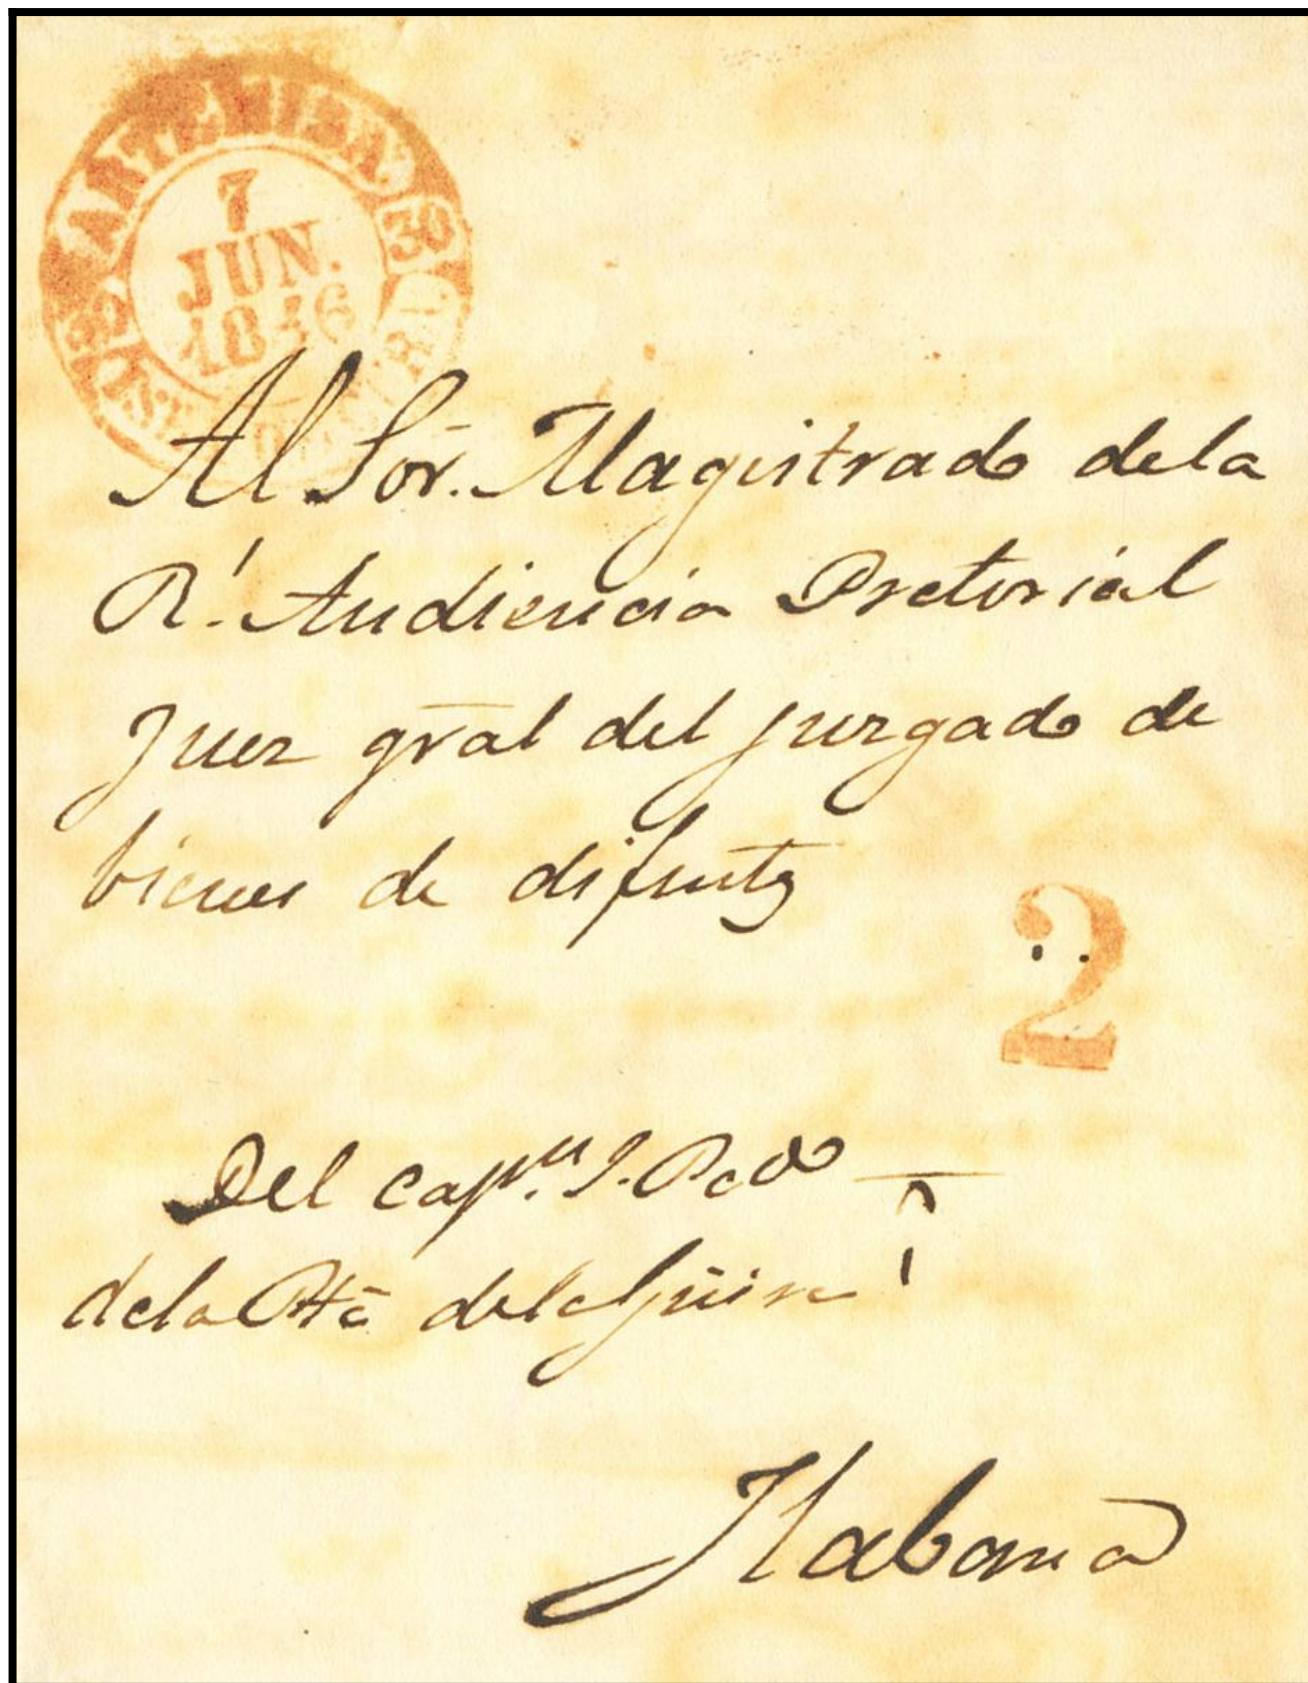 ARTEMISA. 30
7
JUN.
1846
Al Sōr. Magistrado dela
Rl. Audiencia Pretorial
Juez grāl del juzgado de
bienes de difuntos
2
Del capn. J. Pedo
dela Hā del Güira
Habana